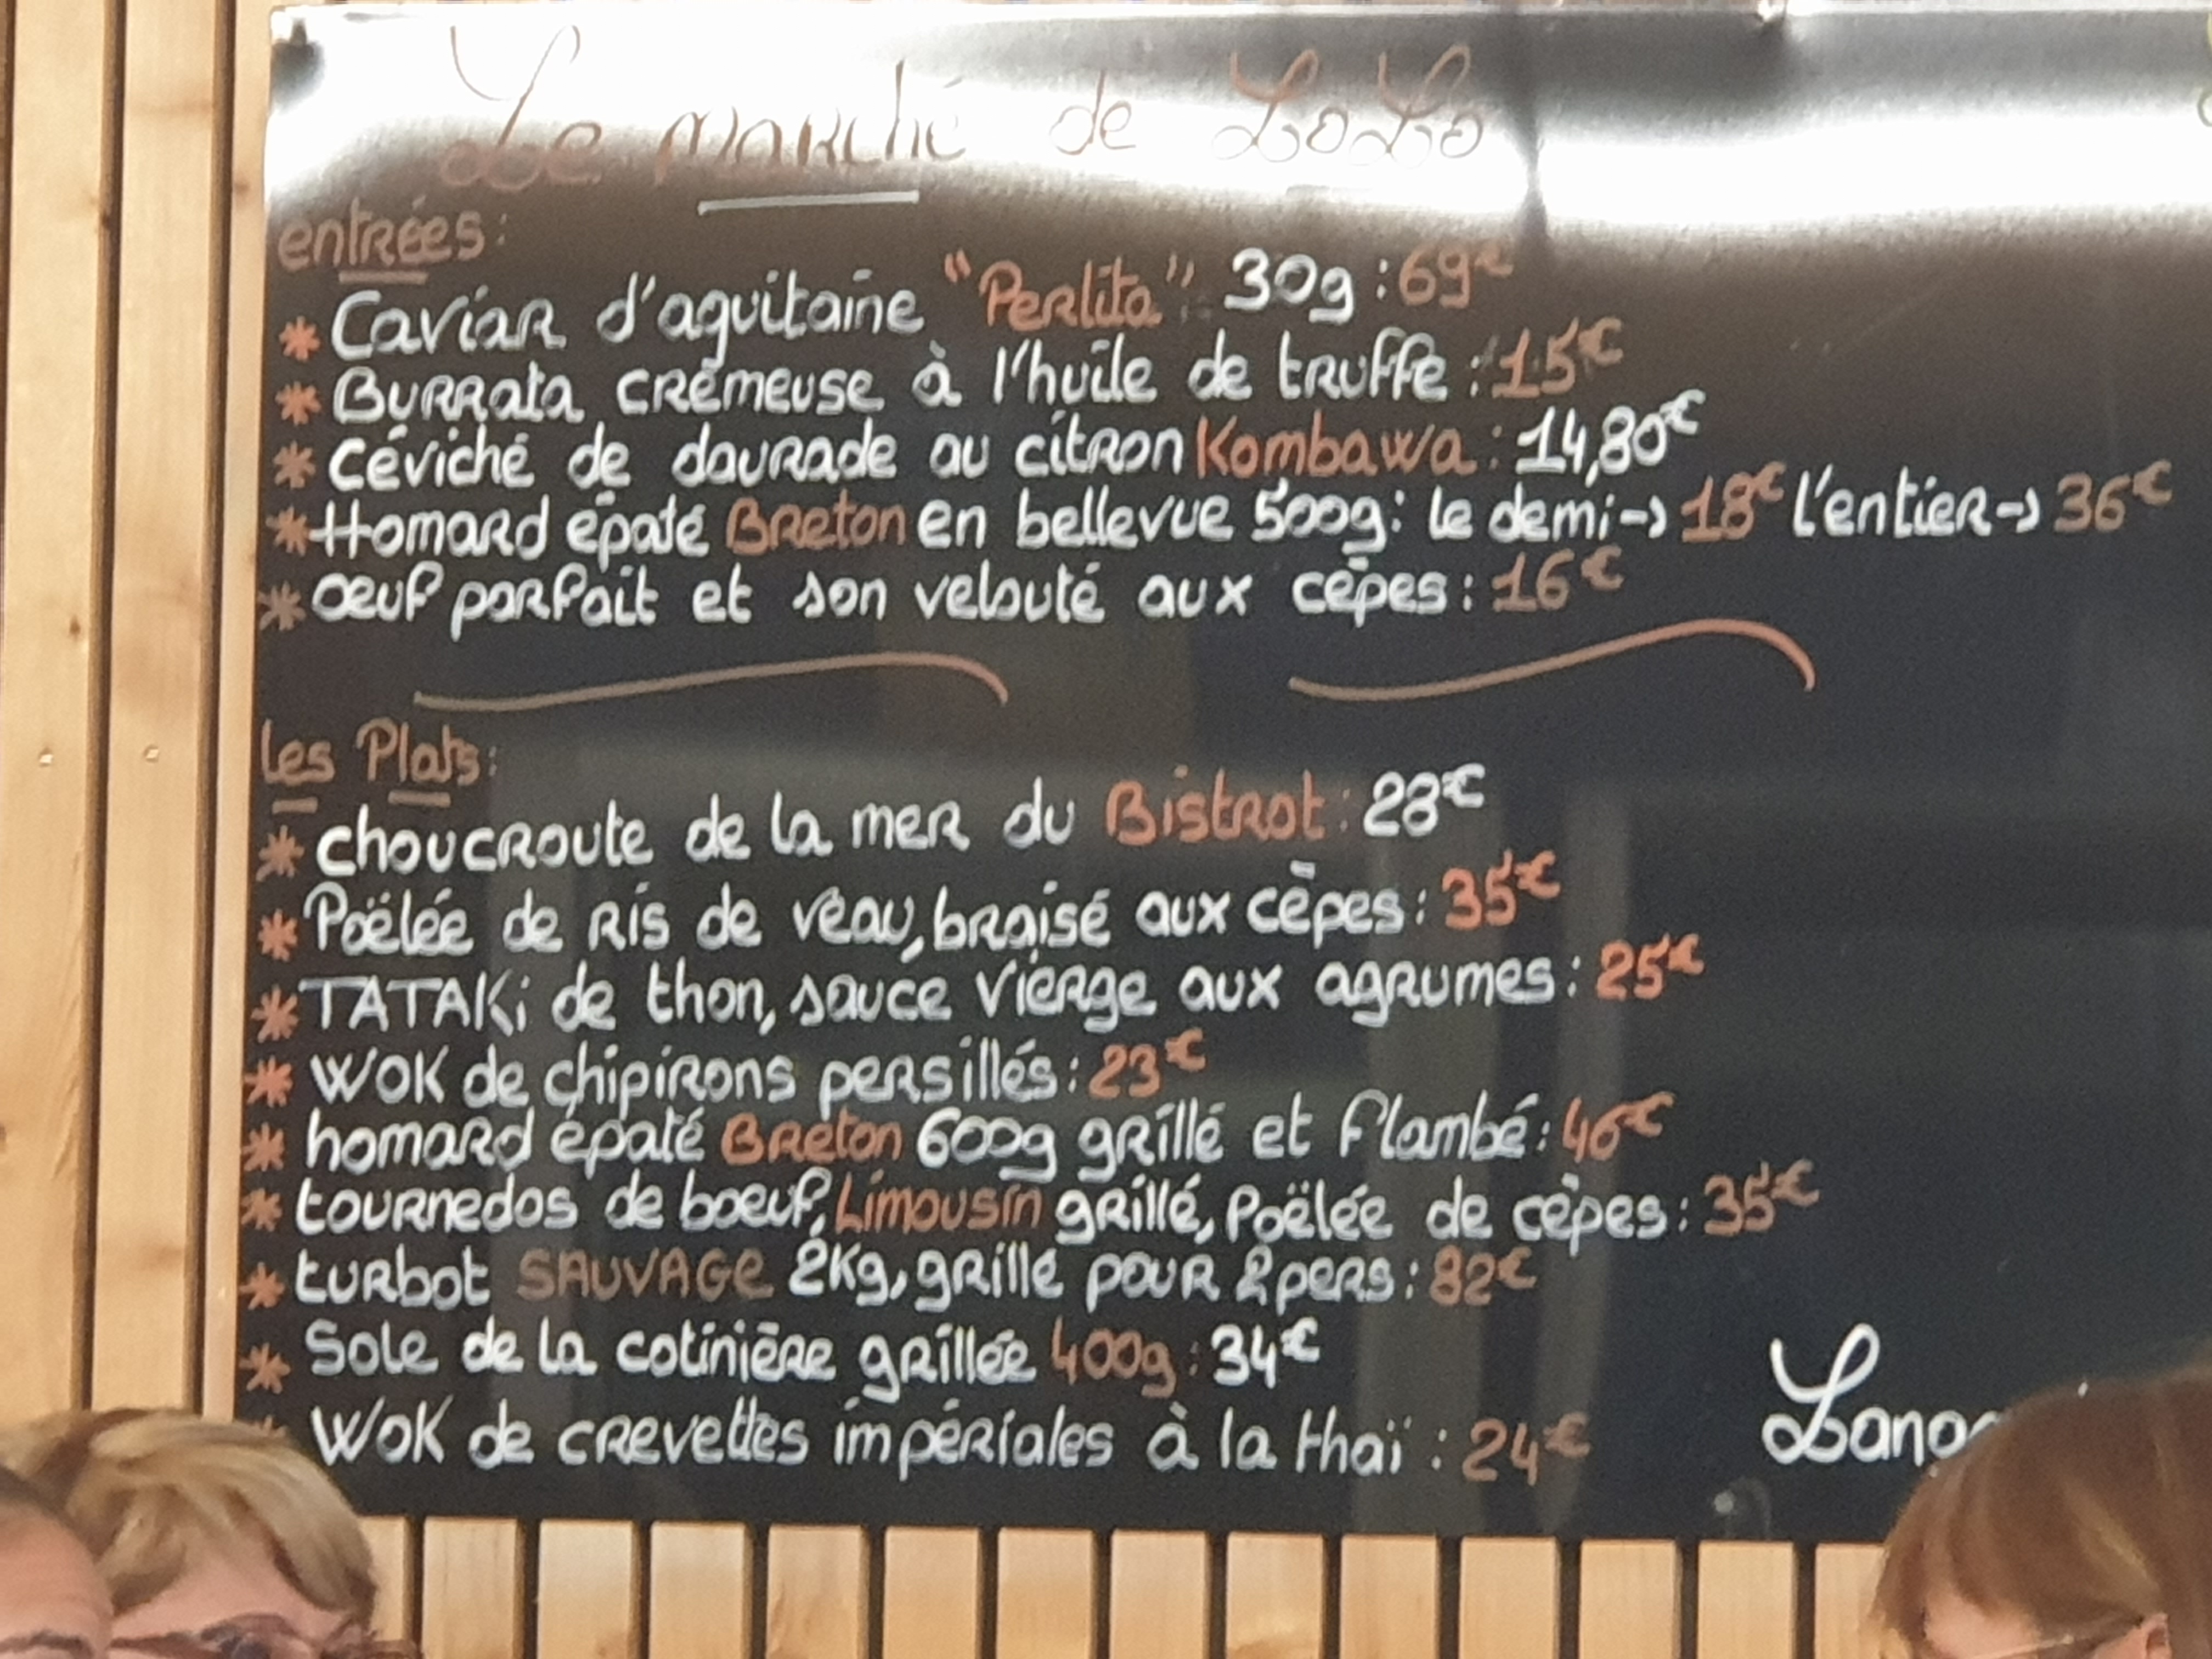 Le marché de LoLo
entrées:
* Caviar d'aquitaine "Perlita" 30g : 69€
* Burrata crémeuse à l'huile de truffe : 15€
* Céviché de daurade au citron Kombawa : 14,80€
* Homard épaté Breton en bellevue 500g: le demi→ 18€ l'entier→ 36€
* œuf parfait et son velouté aux cèpes : 16€
les Plats:
* choucroute de la mer du Bistrot : 28€
* Poëlée de Ris de veau, braisé aux cèpes : 35€
* TATAKi de thon, sauce Vierge aux agrumes : 25€
* WOK de chipirons persillés : 23€
* homard épaté Breton 600g grillé et flambé : 46€
* tournedos de boeuf, Limousin grillé, Poëlée de cèpes : 35€
* turbot SAUVAGE 2Kg, grillé pour 2 pers : 82€
* Sole de la cotinière grillée 400g : 34€
* WOK de crevettes impériales à la thaï : 24€